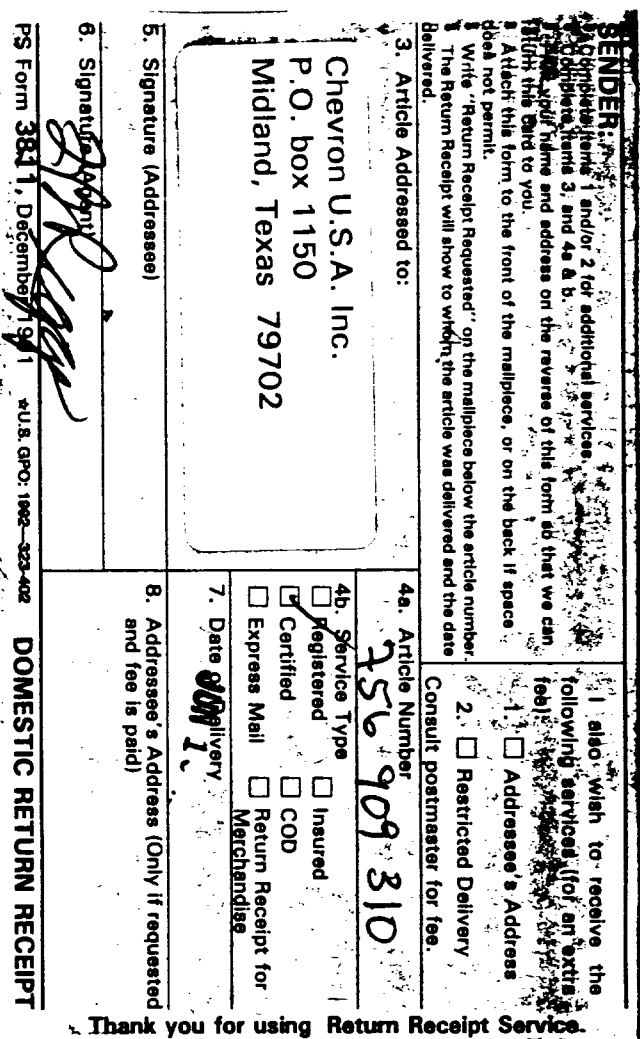 SENDER:
Complete items 1 and/or 2 for additional services.
Complete items 3, and 4a & b.
your name and address on the reverse of this form so that we can
return this card to you.
Attach this form to the front of the mailpiece, or on the back if space
does not permit.
Write "Return Receipt Requested" on the mailpiece below the article number.
The Return Receipt will show to whom the article was delivered and the date
delivered.
I also wish to receive the
following services (for an extra
fee):
1. ☐ Addressee's Address
2. ☐ Restricted Delivery
Consult postmaster for fee.
3. Article Addressed to:
Chevron U.S.A. Inc.
P.O. box 1150
Midland, Texas 79702
4a. Article Number
756 909 310
4b. Service Type
☐ Registered ☐ Insured
☑ Certified ☐ COD
☐ Express Mail ☐ Return Receipt for
Merchandise
7. Date of Delivery
JUN 1
5. Signature (Addressee)
6. Signature (Agent)
8. Addressee's Address (Only if requested
and fee is paid)
PS Form 3811, December 1991 ☆U.S. GPO: 1992—323-402 DOMESTIC RETURN RECEIPT
Thank you for using Return Receipt Service.